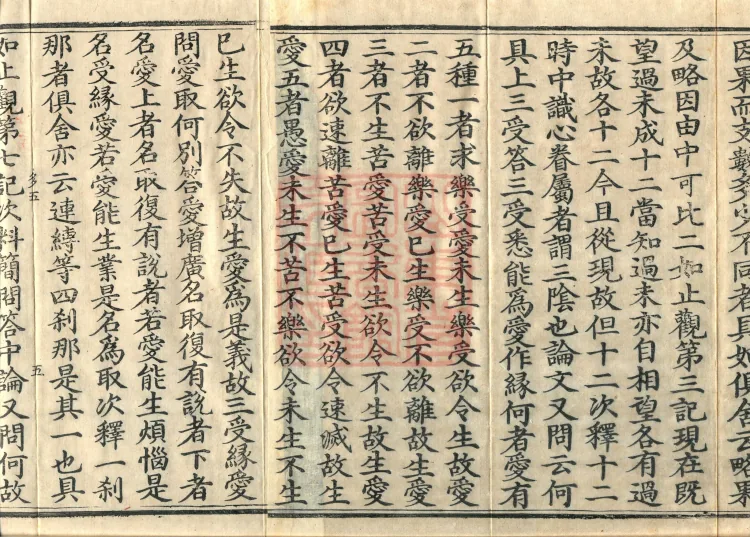 因果而支數多少不同者具如俱舍云略果
及略因由中可比二如止觀第三記現在既
望過未成十二當知過未亦自相望各有過
未故各十二今且從現故但十二次釋十二
時中識心眷屬者謂三陰也論文又問云何
具上三受荅三受悉能為愛作緣何者愛有
五種一者求樂受愛未生樂受欲令生故生愛
二者不欲離樂愛已生樂受不欲離故生愛
三者不生苦愛苦受未生欲令不生故生愛
四者欲速離苦愛已生苦受欲令速滅故生
愛五者愚愛未生不苦不樂欲令未生不生
已生欲令不失故生愛為是義故三受緣愛
問愛取何別荅愛增廣名取復有說者下者
名愛上者名取復有說者若愛能生煩惱是
名受緣愛若愛能生業是名為取次釋一剎
那者俱舍亦云連縛等四剎那是其一也具
多五
五
如止觀第七記次料簡問荅中論又問何故